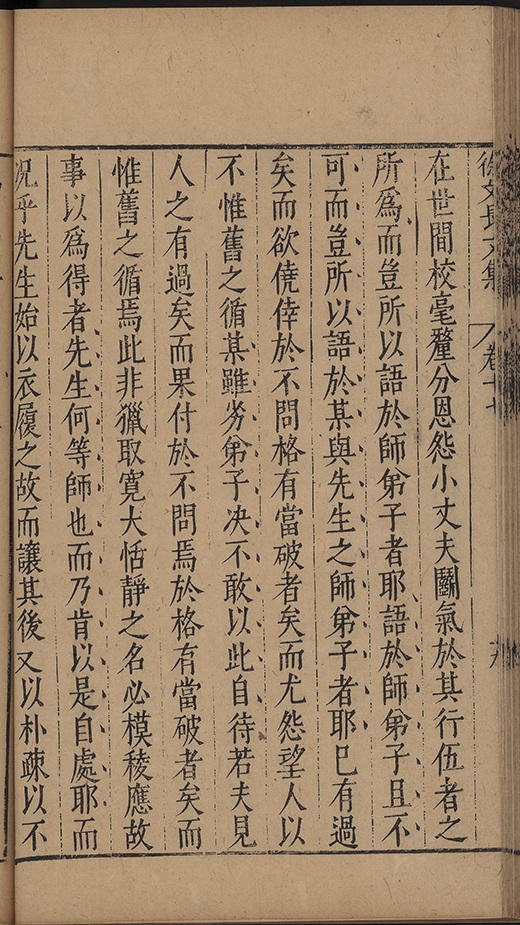 徐文長文集 卷十七 
在世間校毫釐分恩怨小丈夫鬬氣於其行伍者之
所為而豈所以語於師弟子者耶語於師弟子且不
可而豈所以語於某與先生之師弟子者耶巳有過
矣而欲僥倖於不問格有當破者矣而尤怨望人以
不惟舊之循某雖劣弟子决不敢以此自待若夫見
人之有過矣而果付於不問焉於格有當破者矣而
惟舊之循焉此非獵取寬大恬靜之名必模稜應故
事以為得者先生何等師也而乃肯以是自處耶而
况乎先生始以衣履之故而讓其後又以朴疎以不